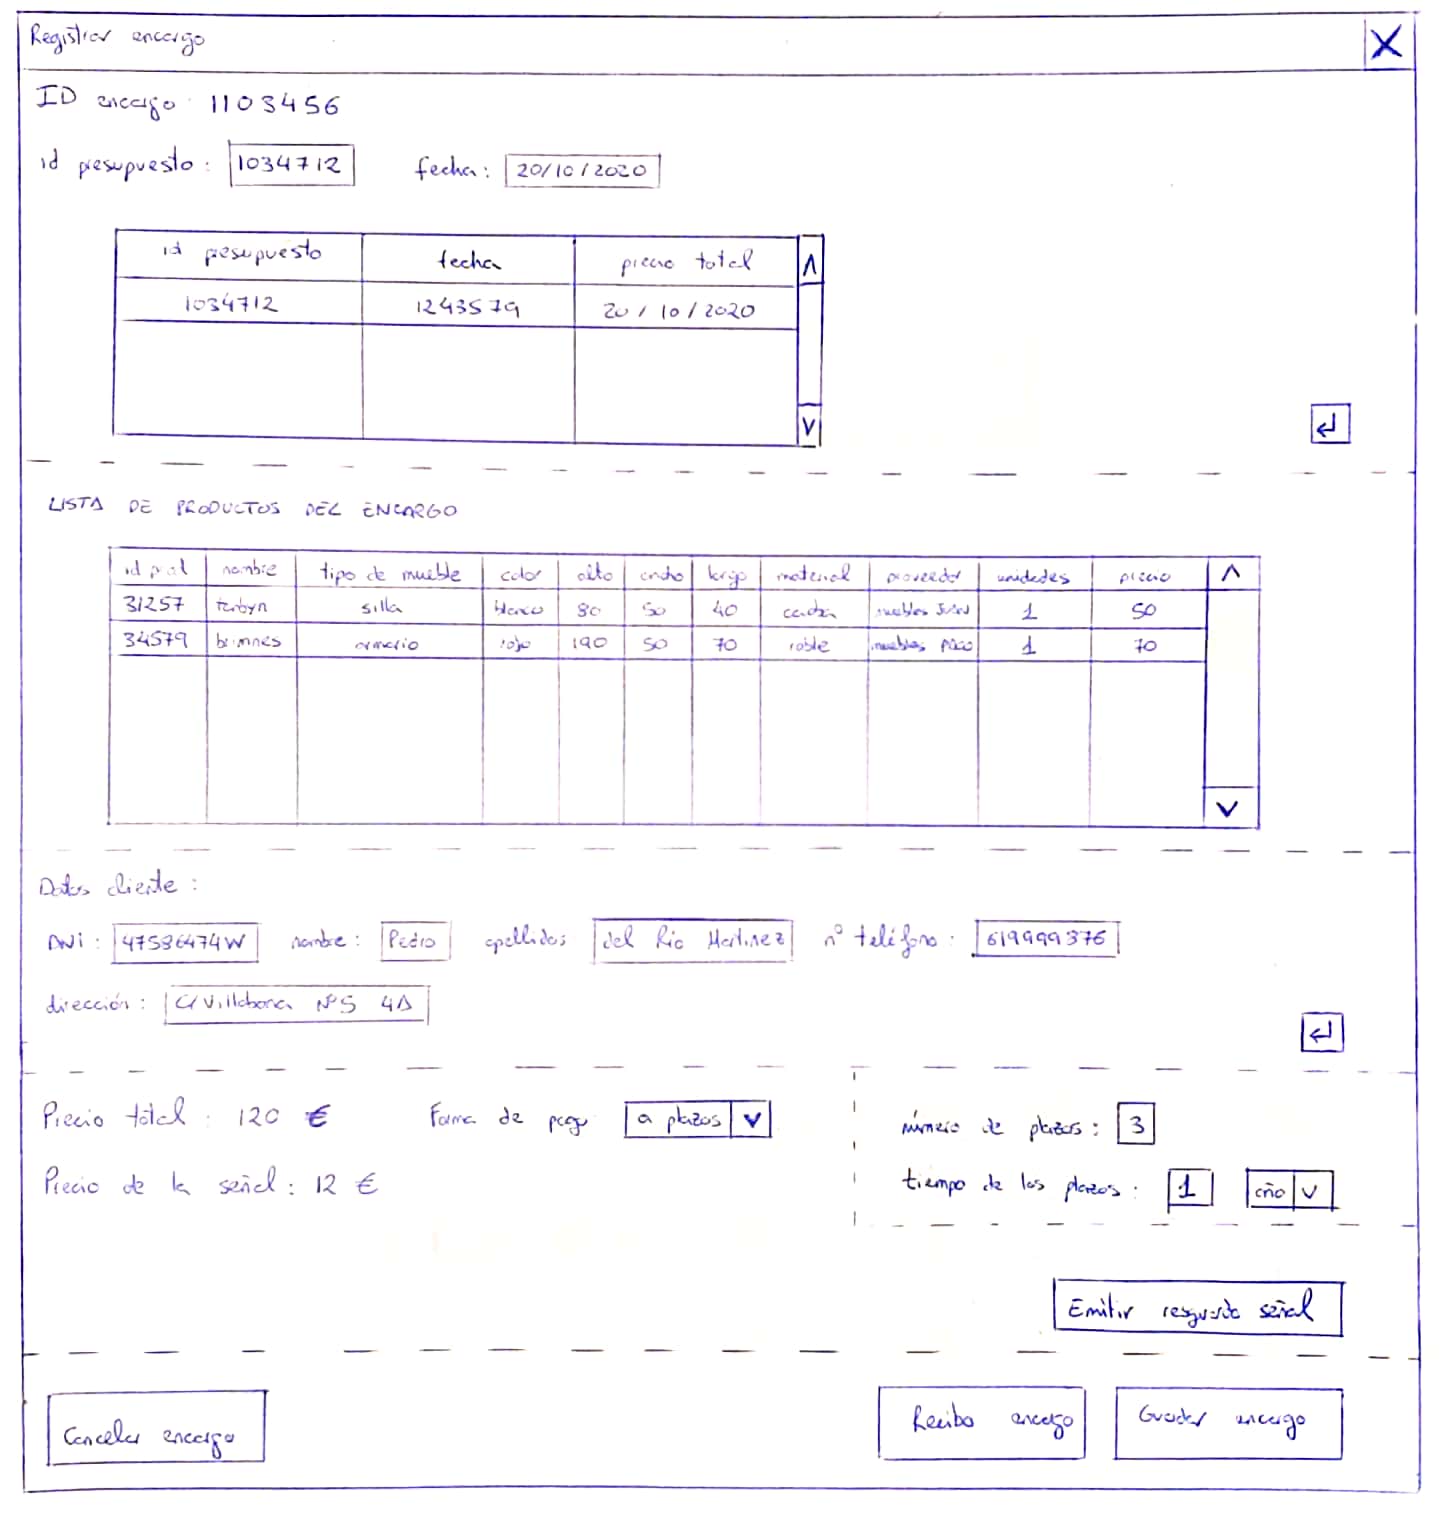 Registrar encargo X
ID encargo: 1103456
id presupuesto: 1034712 fecha: 20/10/2020
id presupuesto fecha precio total
1034712 1243579 20/10/2020
LISTA DE PRODUCTOS DEL ENCARGO
id prod nombre tipo de mueble color alto ancho largo material proveedor unidades precio
31257 silla blanco 80 50 40 caoba muebles Juan 1 50
34579 brimnes armario rojo 190 50 70 roble muebles Paco 1 70
Datos cliente:
DNi: 47586474W nombre: Pedro apellidos del Rio Martinez nº teléfono: 619999376
dirección: C/Villabona Nº5 4A
Precio total: 120 € Forma de pago a plazos
número de plazos: 3
Precio de la señal: 12 €
tiempo de los plazos: 1 año
Emitir resguardo señal
Cancelar encargo Recibo encargo Guardar encargo